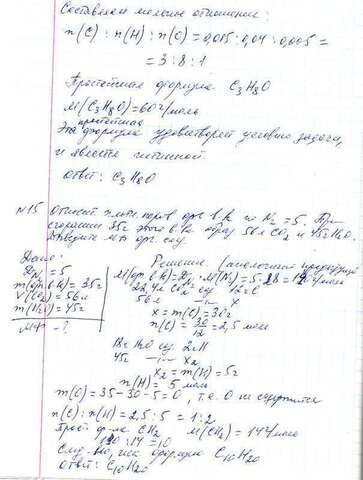 Составляем мольные отношения:
n(C) : n(H) : n(O) = 0,015 : 0,04 : 0,005 =
= 3 : 8 : 1
Простейшая формула C₃H₈O
M(C₃H₈O) = 60 г/моль
Эта простейшая формула удовлетворяет условию задачи,
и является истинной.
Ответ: C₃H₈O
№15 Относит. плотн. паров орг. в-ва по N₂ = 5. При
сгорании 35г этого в-ва образ. 56л CO₂ и 45г H₂O.
Выведите МФ орг. соед.
Дано:
D N₂ = 5
m(орг. в-ва) = 35г
V(CO₂) = 56л
m(H₂O) = 45г
МФ - ?
Решение (аналогично предыдущей
M(орг в-ва) = D · M(N₂) = 5 · 28 = 140 г/моль
22,4л CO₂ сод. 12г C
56л —〃— x
x = m(C) = 30г
n(C) = 30/12 = 2,5 моль
18г H₂O сод. 2г H
45г —〃— x₂
x₂ = m(H) = 5г
n(H) = 5 моль
m(O) = 35 - 30 - 5 = 0, т.е. O не содержится
n(C) : n(H) = 2,5 : 5 = 1 : 2
Прост. ф-ла CH₂ M(CH₂) = 14 г/моль
140 : 14 = 10
След-но, иск. формула C₁₀H₂₀
Ответ: C₁₀H₂₀